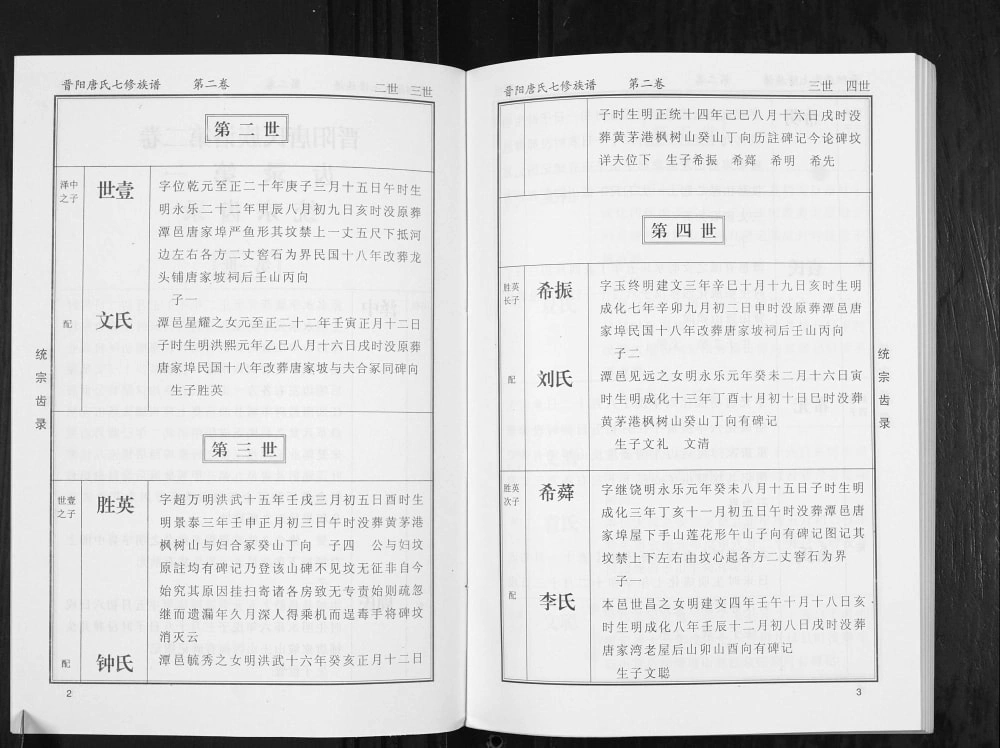 晋阳唐氏七修族谱 第二卷 二世 三世
第二世
泽中之子
世壹
字位乾元至正二十年庚子三月十五日午时生
明永乐二十二年甲辰八月初九日亥时没原葬
潭邑唐家埠严鱼形其坟禁上一丈五尺下抵河
边左右各方二丈窑石为界民国十八年改葬龙
头铺唐家坡祠后壬山丙向
子一
配
文氏
潭邑星耀之女元至正二十二年壬寅正月十二日
子时生明洪熙元年乙巳八月十六日戌时没原葬
唐家埠民国十八年改葬唐家坡与夫合冢同碑向
生子胜英
第三世
世壹之子
胜英
字超万明洪武十五年壬戌三月初五日酉时生
明景泰三年壬申正月初三日午时没葬黄茅港
枫树山与妇合冢癸山丁向 子四 公与妇坟
原註均有碑记乃登该山碑不见坟无征非自今
始究其原因挂扫寄诸各房致无专责始则疏忽
继而遗漏年久月深人得乘机而逞毒手将碑坟
消灭云
配
钟氏
潭邑毓秀之女明洪武十六年癸亥正月十二日
统宗齿录
2
晋阳唐氏七修族谱 第二卷 三世 四世
子时生明正统十四年己巳八月十六日戌时没
葬黄茅港枫树山癸山丁向历註碑记今论碑坟
详夫位下 生子希振 希蕣 希明 希先
第四世
胜英长子
希振
字玉终明建文三年辛巳十月十九日亥时生明
成化七年辛卯九月初二日申时没原葬潭邑唐
家埠民国十八年改葬唐家坡祠后壬山丙向
子二
配
刘氏
潭邑见远之女明永乐元年癸未二月十六日寅
时生明成化十三年丁酉十月初十日巳时没葬
黄茅港枫树山癸山丁向有碑记
生子文礼 文清
胜英次子
希蕣
字继饶明永乐元年癸未八月十五日子时生明
成化三年丁亥十一月初五日午时没葬潭邑唐
家埠屋下手山莲花形午山子向有碑记图记其
坟禁上下左右由坟心起各方二丈窑石为界
子一
配
李氏
本邑世昌之女明建文四年壬午十月十八日亥
时生明成化八年壬辰十二月初八日戌时没葬
唐家湾老屋后山卯山酉向有碑记
生子文聪
统宗齿录
3